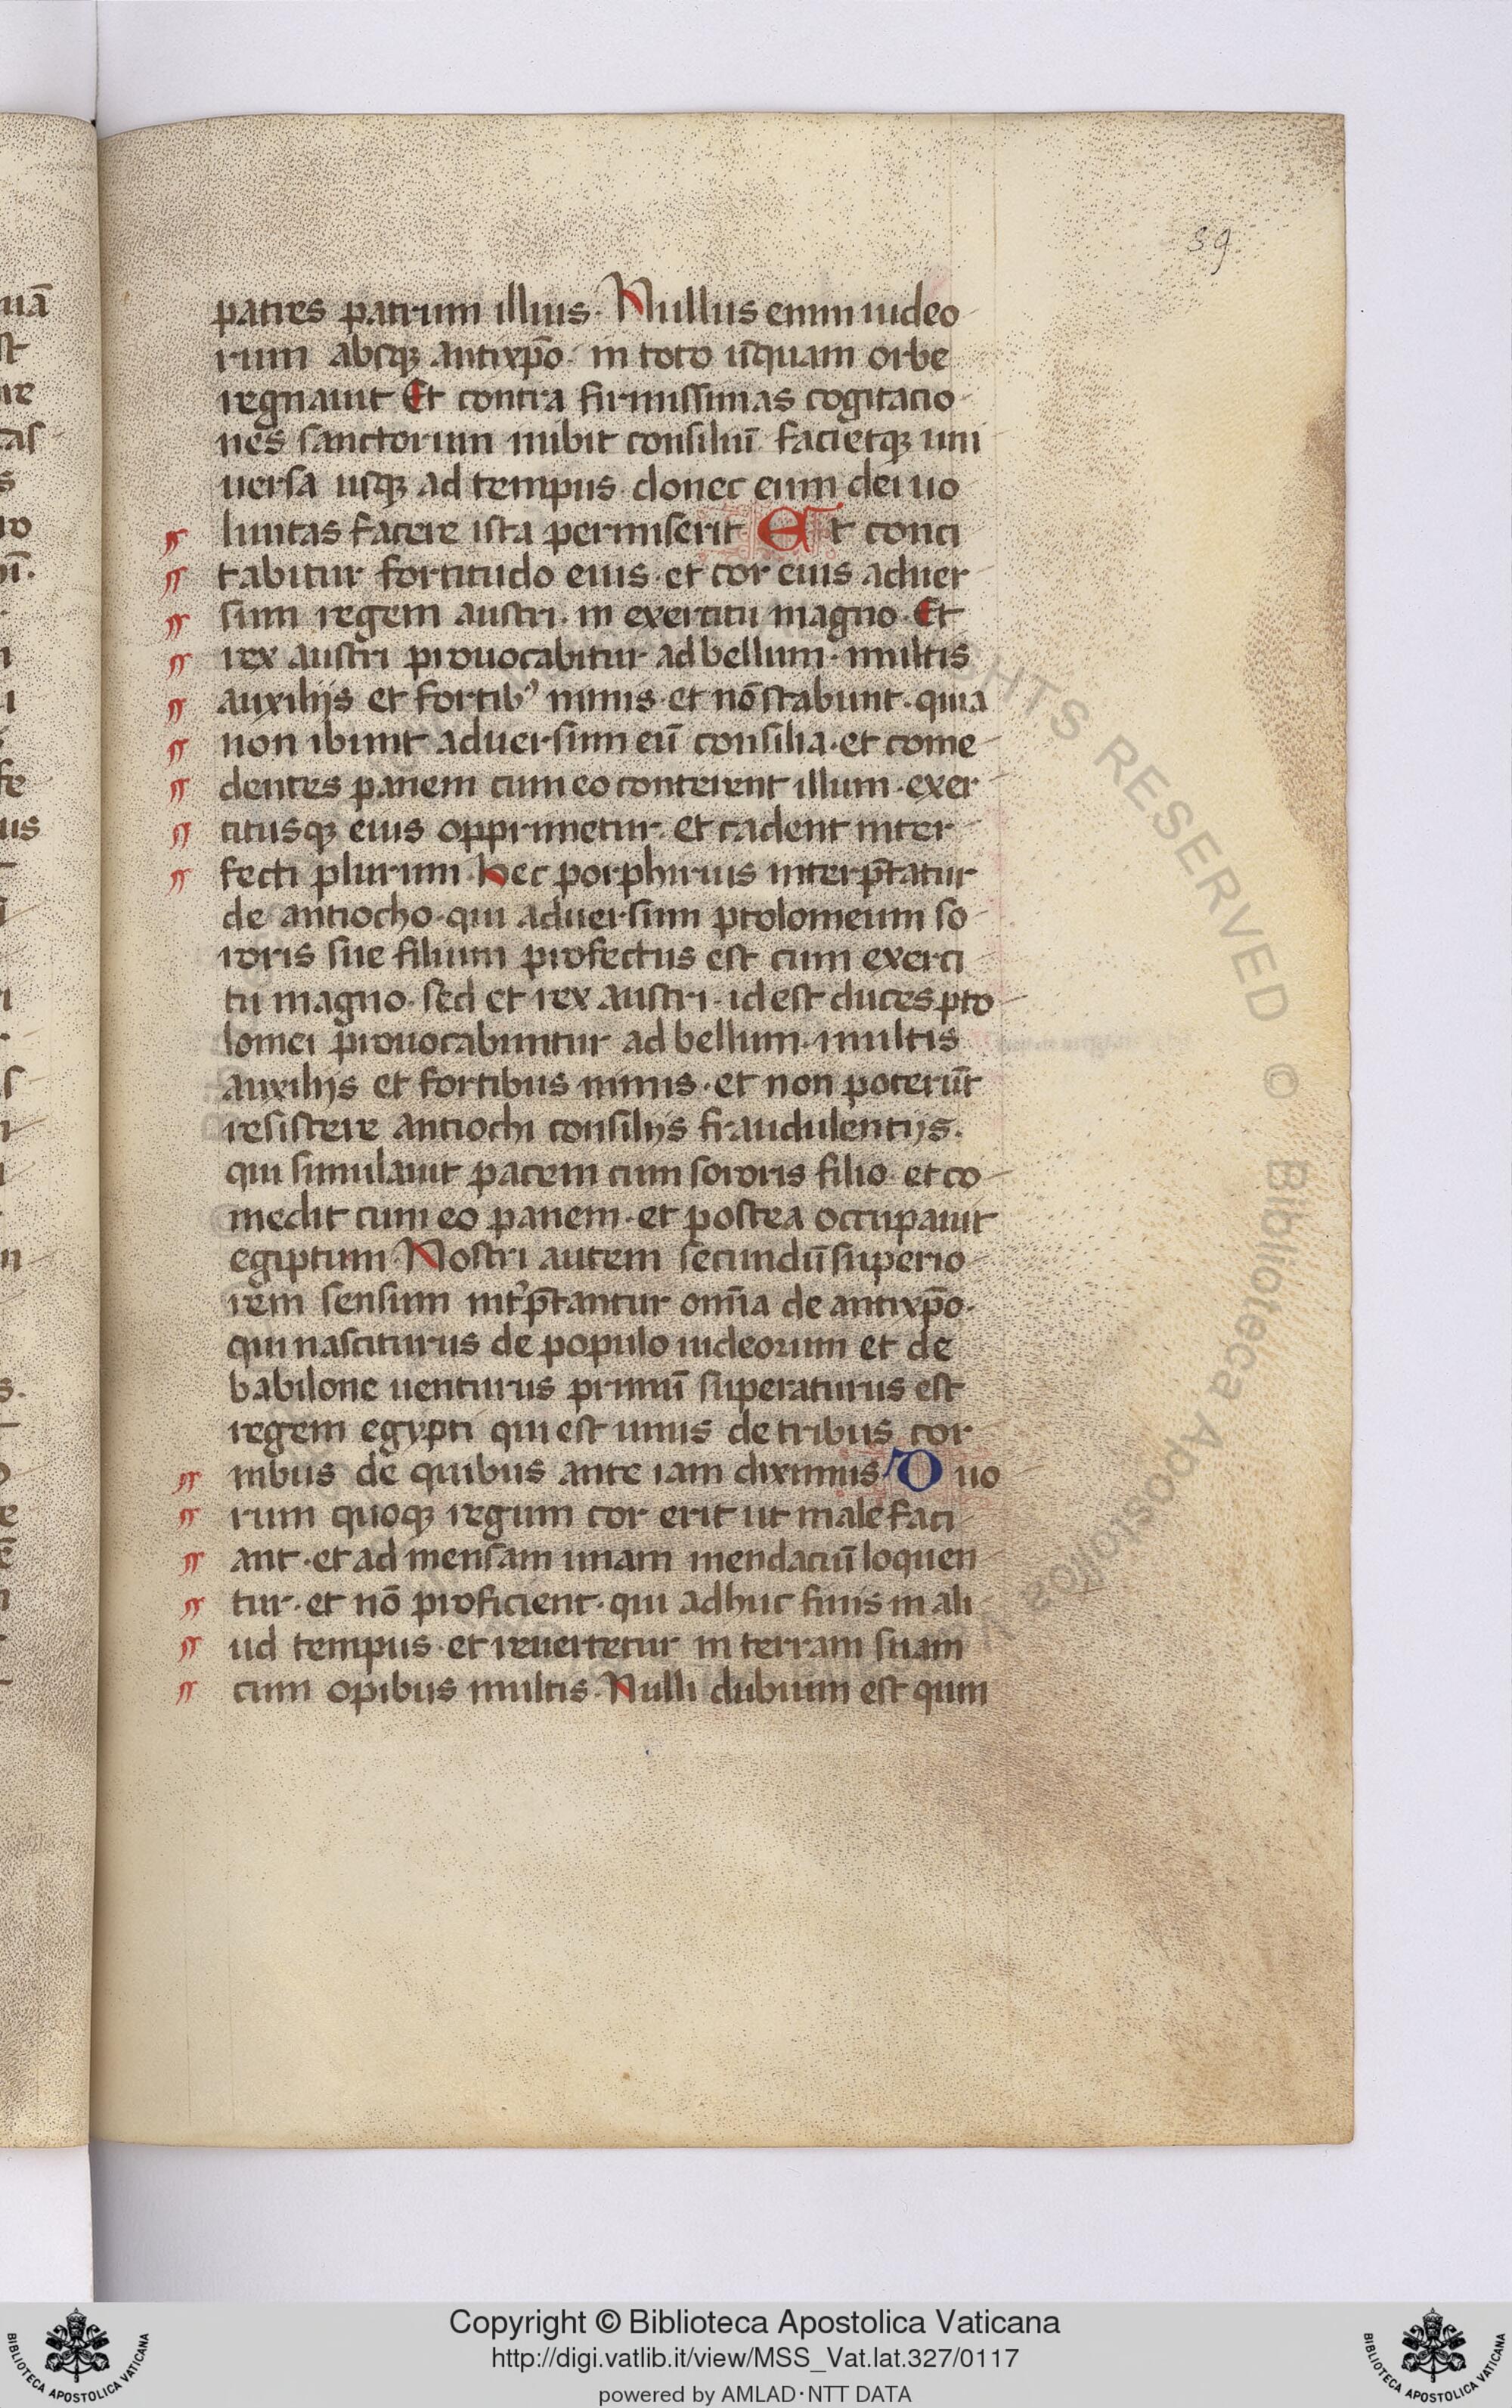 39
patres patrum illius. Nullus enim iudeo
rum absqꝫ antixp̄o. in toto ūquam orbe
regnauit Et contra firmissimas cogitacio
nes sanctorum inibit consiliū. facietqꝫ uni
uersa usqꝫ ad tempus. donec eum dei uo
luntas facere ista permiserit. Et conci
tabitur fortitudo eius. et cor eius aduer
sum regem austri. in exercitu magno. Et
rex austri prouocabitur ad bellum. multis
auxilijs et fortibꝰ nimis. et nō stabunt. quia
non ibunt aduersum eū consilia. et come
dentes panem cum eo conterent illum. exer
citusqꝫ eius opprimetur. et cadent inter
fecti plurimi. hec porphirius interp̄tatur
de antiocho. qui aduersum ptolomeum so
roris sue filium profectus est cum exerci
tu magno. sed et rex austri. id est duces pto
lomei prouocabuntur ad bellum. multis
auxilijs et fortibus nimis. et non poterūt
resistere antiochi consilijs fraudulentijs.
qui simulauit pacem cum sororis filio. et co
medit cum eo panem. et postea occupauit
egiptum. Nostri autem secundū superio
rem sensum int̉p̄tantur om̄ia de antixp̄o.
qui nasciturus de populo iudeorum et de
babilone uenturus primū superaturus est
regem egypti qui est unus de tribus cor
nibus de quibus ante iam diximus. Duo
rum quoqꝫ regum cor erit ut malefaci
ant. et ad mensam unam mendaciū loquen
tur. et nō proficient. qui adhuc finis in ali
ud tempus. et reuertetur in terram suam
cum opibus multis. Nulli dubium est quin
HTS RESERVED © Biblioteca Apostolica
Copyright © Biblioteca Apostolica Vaticana
http://digi.vatlib.it/view/MSS_Vat.lat.327/0117
powered by AMLAD·NTT DATA
BIBLIOTECA APOSTOLICA VATICANA
BIBLIOTECA APOSTOLICA VATICANA